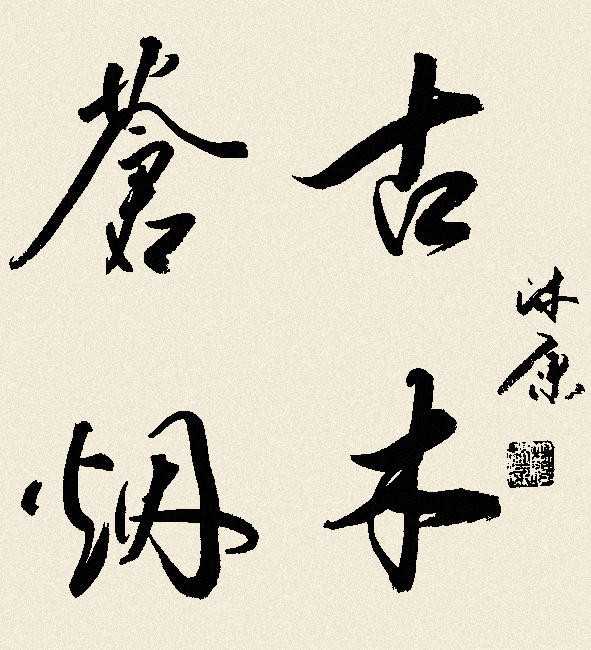 古木
蒼烟
沐康